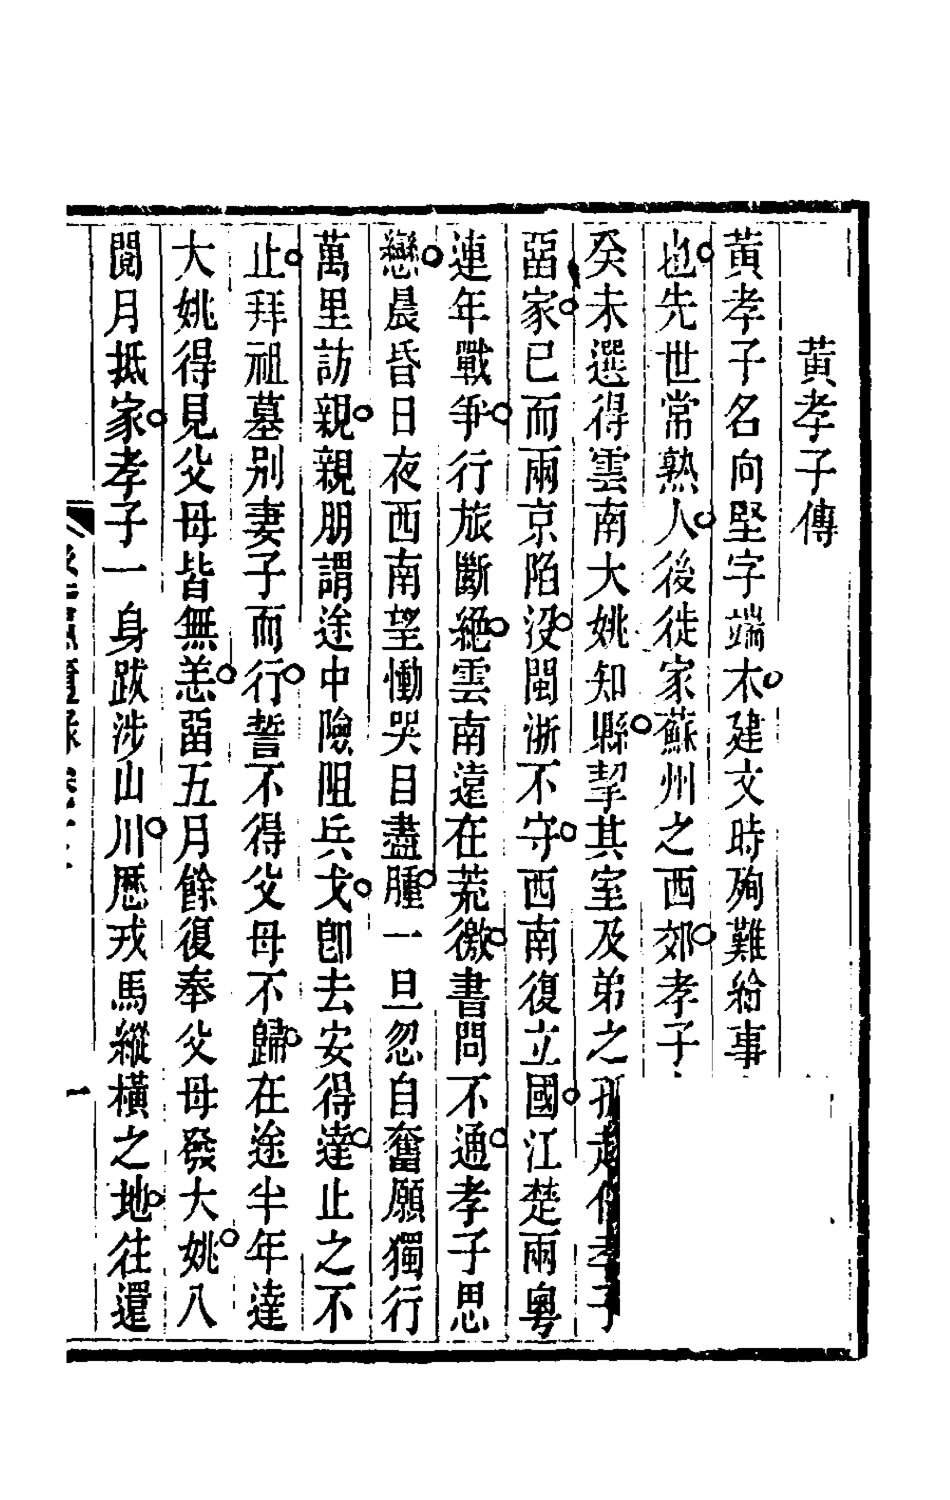 黃孝子傳
黃孝子名向堅字端木建文時殉難給事
也先世常熟人後徙家蘇州之西郊孝子
癸未選得雲南大姚知縣挈其室及弟之孤赴任孝子
畱家已而兩京陷沒閩浙不守西南復立國江楚兩粵
連年戰爭行旅斷絕雲南遠在荒徼書問不通孝子思
戀晨昏日夜西南望慟哭目盡腫一旦忽自奮願獨行
萬里訪親親朋謂途中險阻兵戈卽去安得達止之不
止拜祖墓別妻子而行誓不得父母不歸在途半年達
大姚得見父母皆無恙畱五月餘復奉父母發大姚八
閱月抵家孝子一身跋涉山川歷戎馬縱橫之地往還
一